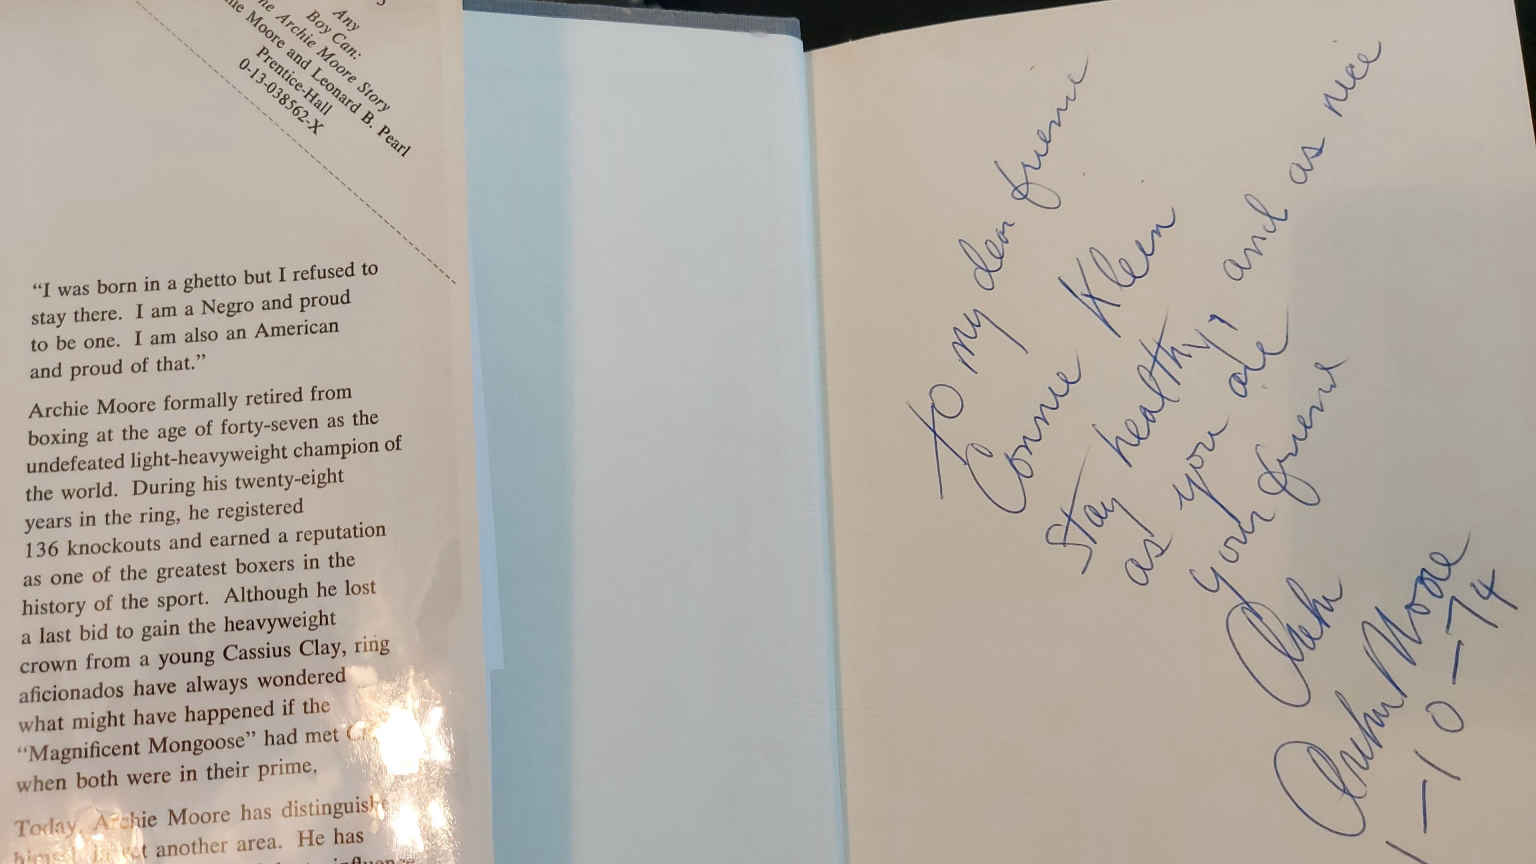 Any
Boy Can:
The Archie Moore Story
Moore and Leonard B. Pearl
Prentice-Hall
0-13-038562-X
“I was born in a ghetto but I refused to
stay there. I am a Negro and proud
to be one. I am also an American
and proud of that.”
Archie Moore formally retired from
boxing at the age of forty-seven as the
undefeated light-heavyweight champion of
the world. During his twenty-eight
years in the ring, he registered
136 knockouts and earned a reputation
as one of the greatest boxers in the
history of the sport. Although he lost
a last bid to gain the heavyweight
crown from a young Cassius Clay, ring
aficionados have always wondered
what might have happened if the
“Magnificent Mongoose” had met
when both were in their prime.
Today, Archie Moore has distinguishe
another area. He has
To my dear friend
Connie Kleen
Stay healthy, and as nice
as you are
your friend
Archie
Archie Moore
1-10-74